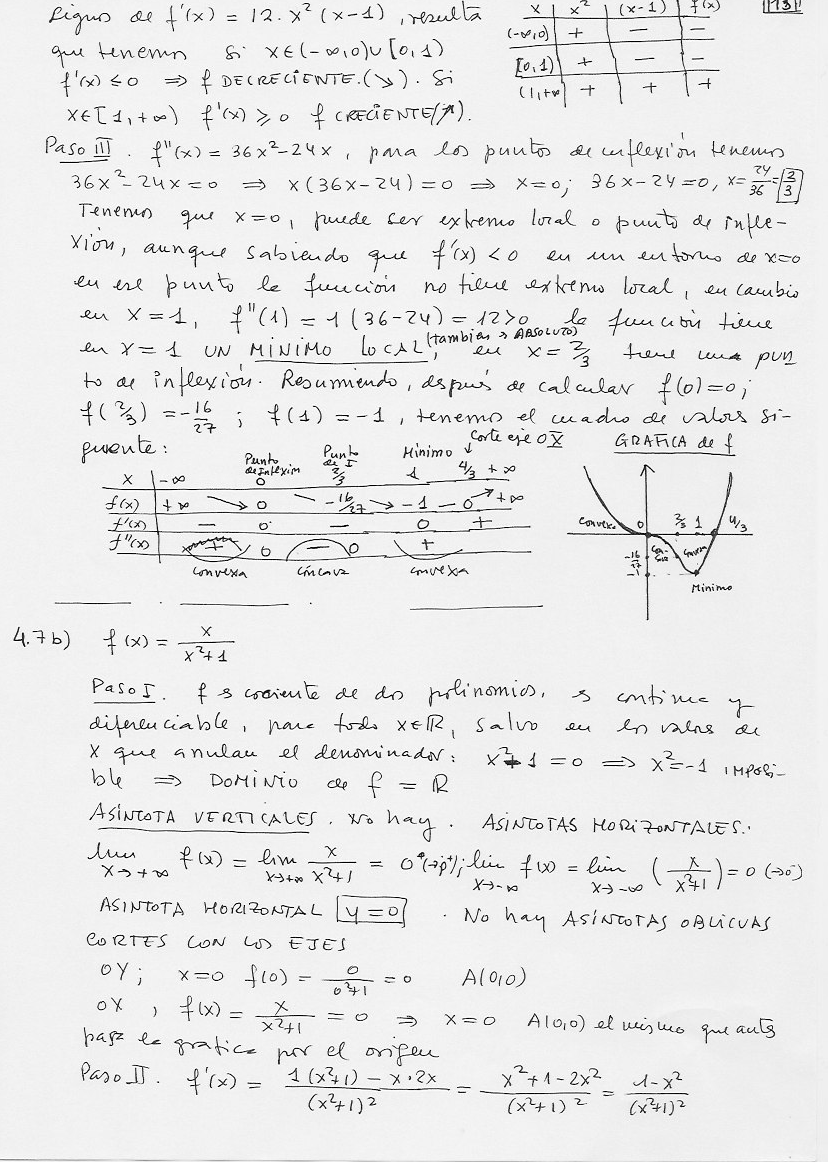 signos de f'(x) = 12·x²(x-1), resulta
que tenemos si x∈(-∞,0)∪[0,1)
f'(x) ≤ 0 ⇒ f DECRECIENTE.(↘). Si
x∈[1,+∞) f'(x) ⩾ 0 f CRECIENTE(↗).
x | x² | (x-1) | f'(x)
(-∞,0) | + | - | -
[0,1) | + | - | -
(1,+∞ | + | + | +
Paso III. f''(x) = 36x²-24x, para los puntos de inflexión tenemos
36x²-24x=0 ⇒ x(36x-24)=0 ⇒ x=0; 36x-24=0, x=24/36=2/3
Tenemos que x=0, puede ser extremo local o punto de infle-
xión, aunque sabiendo que f'(x)<0 en un entorno de x=0
en ese punto la función no tiene extremo local, en cambio
en x=1, f''(1) = 1(36-24) = 12>0 la función tiene
en x=1 UN MÍNIMO LOCAL, (también es ABSOLUTO) en x=2/3 tiene un pun
to de inflexión. Resumiendo, después de calcular f(0)=0;
f(2/3) = -16/27; f(1) = -1, tenemos el cuadro de valores si-
guiente:
Punto de Inflexión Punto de I Mínimo Corte eje OX
x | -∞ 0 2/3 1 4/3 +∞
f(x) | +∞ ↘ 0 -16/27 ↘ -1 - 0 ↗ +∞
f'(x) | - 0 - 0 +
f''(x) | + 0 - 0 +
Convexa Cóncava Convexa
GRAFICA de f
Convexa 0 2/3 1 4/3
-16/27
-1
Mínimo
4.7b) f(x) = x/(x²+1)
Paso I. f es cociente de dos polinomios, es continua y
diferenciable, para todo x∈ℝ, salvo en los valores de
x que anulan el denominador: x²+1=0 ⇒ x²=-1 IMPOSI-
ble ⇒ DOMINIO de f = ℝ
ASÍNTOTA VERTICALES. No hay. ASINTOTAS HORIZONTALES.
lim x→+∞ f(x) = lim x→+∞ x/(x²+1) = 0⁺(→0⁺); lim x→-∞ f(x) = lim x→-∞ (x/(x²+1)) = 0 (→0⁻)
ASINTOTA HORIZONTAL y=0. No hay ASÍNTOTAS OBLICUAS
CORTES CON LOS EJES
OY; x=0 f(0) = 0/(0²+1) = 0 A(0,0)
OX, f(x) = x/(x²+1) = 0 ⇒ x=0 A(0,0) el mismo que antes
pasa la grafica por el origen
Paso II. f'(x) = (1(x²+1) - x·2x)/(x²+1)² = (x²+1-2x²)/(x²+1)² = (1-x²)/(x²+1)²